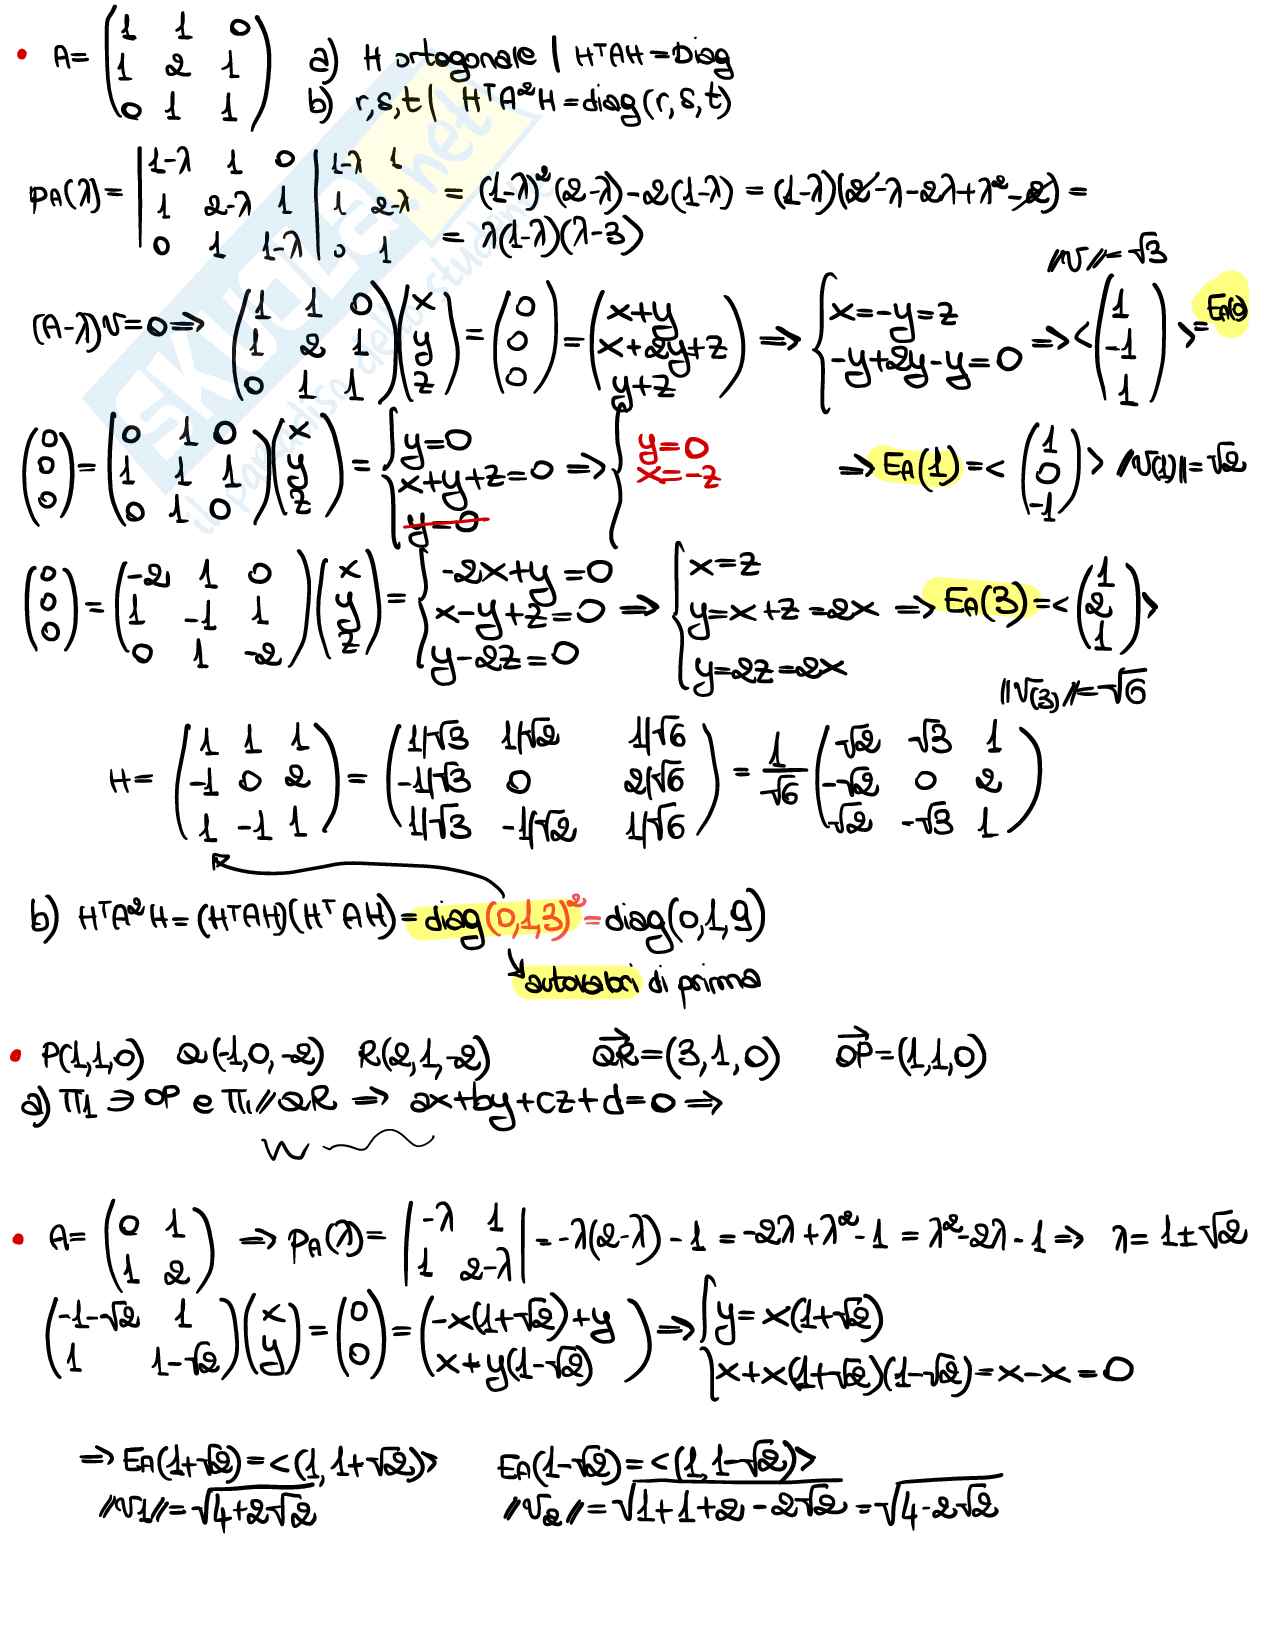 • A= (1 1 0; 1 2 1; 0 1 1) a) H ortogonale | HᵀAH=Diag
b) r,s,t | HᵀA²H=diag(r,s,t)
pA(λ)= |1-λ 1 0; 1 2-λ 1; 0 1 1-λ| 1-λ 1; 1 2-λ; 0 1 = (1-λ)²(2-λ)-2(1-λ) = (1-λ)(2-λ-2λ+λ²-2) =
= λ(1-λ)(λ-3)
//v//=√3
(A-λ)v=0 ⇒ (1 1 0; 1 2 1; 0 1 1)(x; y; z) = (0; 0; 0) = (x+y; x+2y+z; y+z) ⇒ {x=-y=z; -y+2y-y=0 ⇒ <(1; -1; 1)> =EA(0)
(0; 0; 0) = (0 1 0; 1 1 1; 0 1 0)(x; y; z) = {y=0; x+y+z=0; y=0 ⇒ {y=0; x=-z ⇒ EA(1)=<(1; 0; -1)> //v(1)||=√2
(0; 0; 0) = (-2 1 0; 1 -1 1; 0 1 -2)(x; y; z) = {-2x+y=0; x-y+z=0; y-2z=0 ⇒ {x=z; y=x+z=2x; y=2z=2x ⇒ EA(3)=<(1; 2; 1)>
||v(3)//=√6
H= (1 1 1; -1 0 2; 1 -1 1) = (1/√3 1/√2 1/√6; -1/√3 0 2/√6; 1/√3 -1/√2 1/√6) = 1/√6 (√2 √3 1; -√2 0 2; √2 -√3 1)
b) HᵀA²H=(HᵀAH)(HᵀAH)=diag(0,1,3)²=diag(0,1,9)
autovalori di prima
• P(1,1,0) Q(-1,0,-2) R(2,1,-2) QR=(3,1,0) OP=(1,1,0)
a) π1 ∋ OP e π1//QR ⇒ ax+by+cz+d=0 ⇒
• A= (0 1; 1 2) ⇒ pA(λ)= |-λ 1; 1 2-λ| = -λ(2-λ)-1 = -2λ+λ²-1 = λ²-2λ-1 ⇒ λ=1±√2
(-1-√2 1; 1 1-√2)(x; y) = (0; 0) = (-x(1+√2)+y; x+y(1-√2)) ⇒ {y=x(1+√2); x+x(1+√2)(1-√2)=x-x=0
⇒ EA(1+√2)=<(1,1+√2)> EA(1-√2)=<(1,1-√2)>
//v1//=√4+2√2 //v2//=√1+1+2-2√2=√4-2√2
SKUOLA.net
il paradiso dello studente